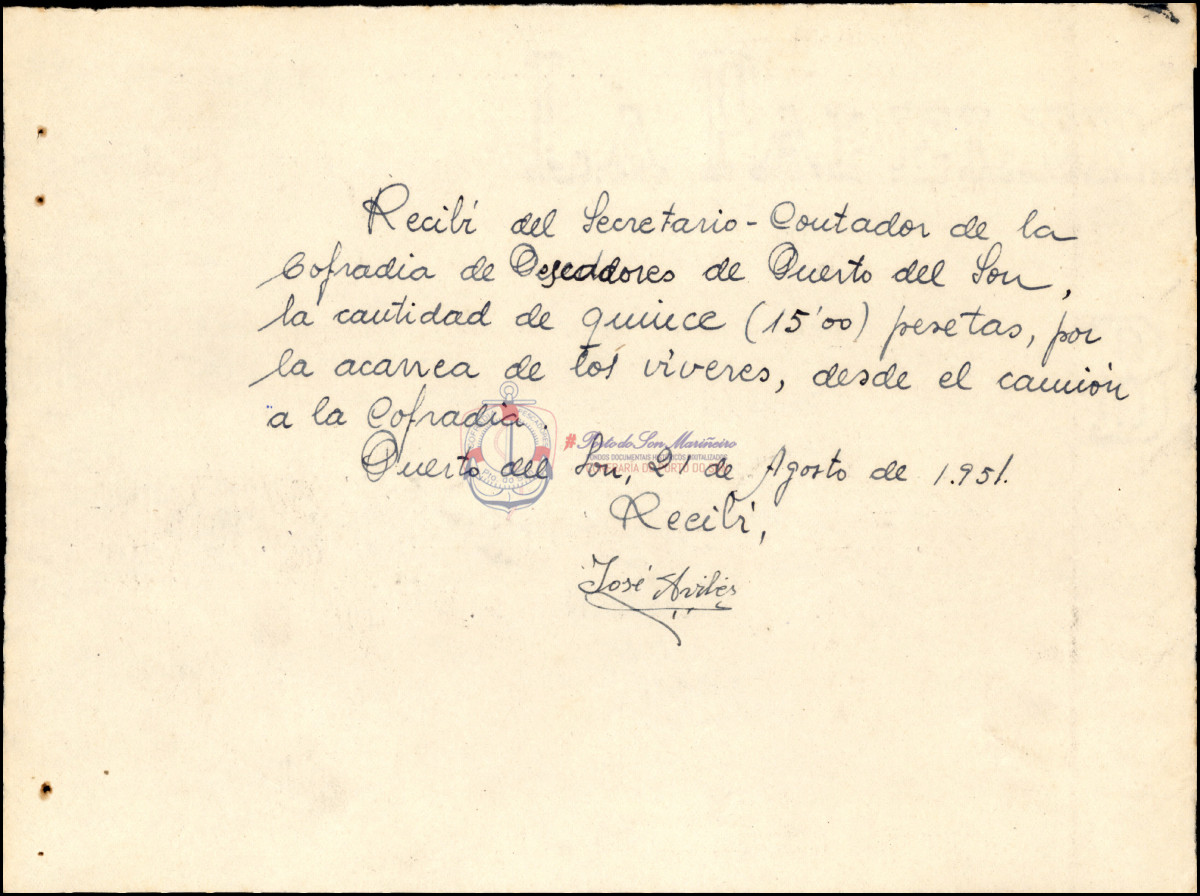 Recibí del Secretario-Contador de la
Cofradia de Pescadores de Puerto del Son,
la cantidad de quince (15'00) pesetas, por
la acarrea de los víveres, desde el camión
a la Cofradia.
#PortodoSonMariñeiro
FONDOS DOCUMENTAIS HISTÓRICOS DIXITALIZADOS
Pto. do Son
Puerto del Son, 21 de Agosto de 1.951.
Recibí,
José Avilés